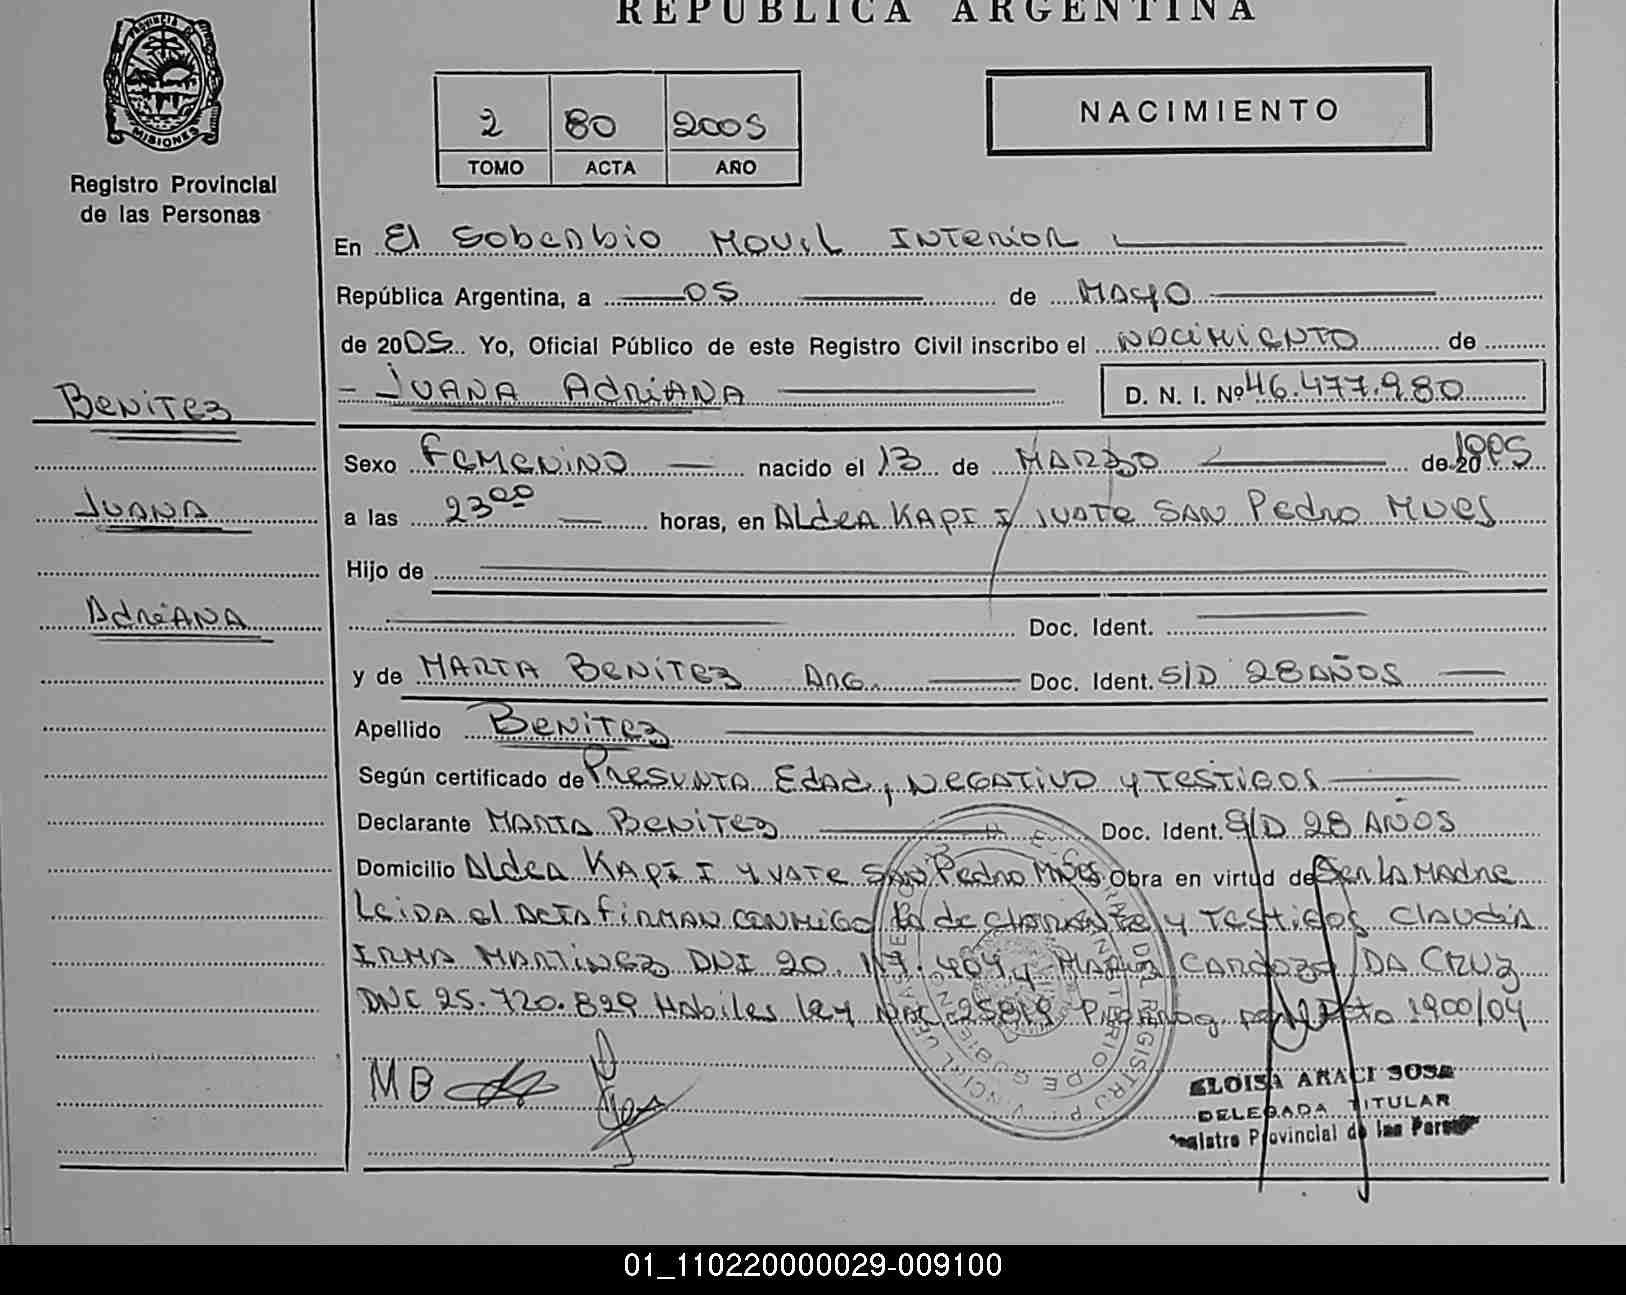 REPUBLICA ARGENTINA
PROVINCIA DE
MISIONES
Registro Provincial
de las Personas
2 80 2005
TOMO ACTA AÑO
NACIMIENTO
En El Soberbio Movil Interior
República Argentina, a 05 de Mayo
de 2005 Yo, Oficial Público de este Registro Civil inscribo el Nacimiento de
- Juana Adriana D. N. I. Nº 46.477.980
Benitez
Juana
Adriana
Sexo Femenino nacido el 13 de Marzo de 20
a las 23 00 horas, en Aldea Kapi I yvate San Pedro Mnes
Hijo de
Doc. Ident.
y de Maria Benitez Arg. Doc. Ident. S/D 28 años
Apellido Benitez
Según certificado de Presunta Edad, Negativo y Testigos
Declarante Maria Benitez Doc. Ident. S/D 28 Años
Domicilio Aldea Kapi I yvate San Pedro Mnes Obra en virtud de Ser la Madre
Leida el Acta firman conmigo la declarante y Testigos Claudia
Irma Martinez DNI 20. 117.404, Cardozo Da Cruz
DNI 25.720.829 Habiles ley Nac 25819 Dto 1900/04
MB
ELOISA ARACI SOSA
DELEGADA TITULAR
Registro Provincial de las Personas
01_110220000029-009100